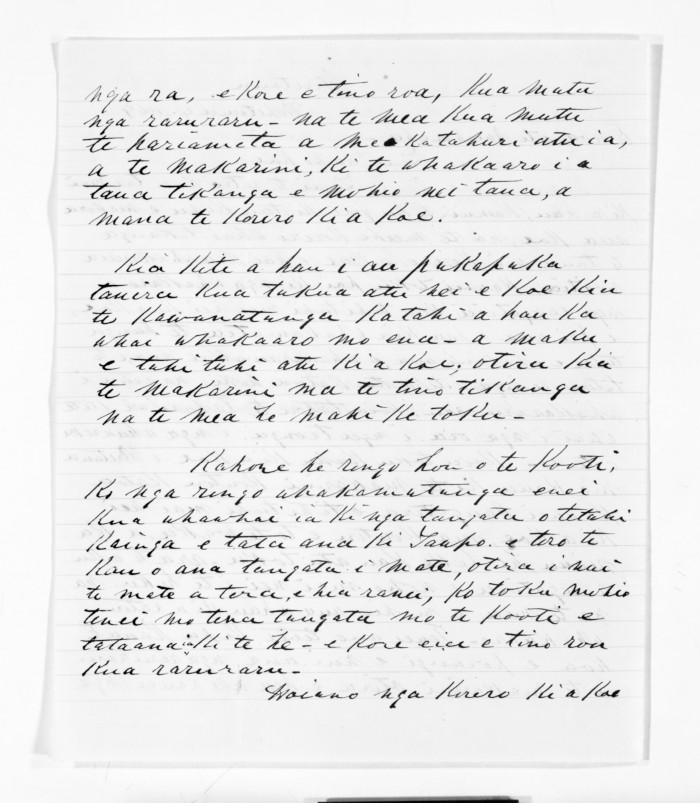 nga ra, e kore e tino roa, kua mutu
nga raruraru - na te mea kua mutu
te pariameta a mea katahuri atu ia,
a te Makarini, ki te whakaaro i a
taua tikanga e mohio nei taua, a
mana te korero ki a koe.
Kia kite a hau i au pukapuka
tauira kua tukua atu nei e koe kia
te Kawanatanga katahi a hau ka
whai whakaaro mo ena - a maku
e tuhi tuhi atu ki a koe; otira kia
te Makarini ma te tino tikanga
na te mea he mahi ke toku -
Kahore he rongo hou o te Kooti,
Ko nga rongo whakamutunga enei
kua whawhai ia ki nga tangata o tetahi
kainga e tata ana ki Taupo. e toro te
kau o ana tangata i mate, otira i nai
te mate a tera, e hia ranei, Ko toku mohio
tenei mo tena tangata mo te Kooti e
tata ana ia ki te he - e kore eia e tino roa
kua raruraru -
Heiano nga korero ki a koe